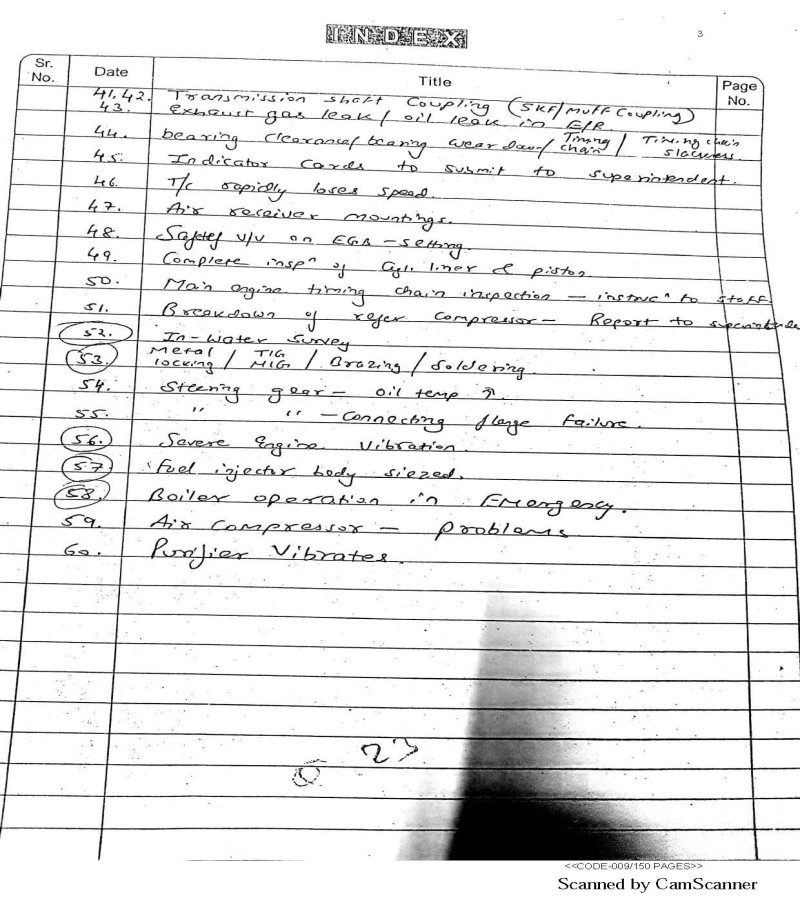 INDEX
3
Sr. No. Date Title Page No.
41,42. Transmission shaft Coupling (SKF/Muff Coupling)
43. exhaust gas leak/ oil leak in E/R.
44. bearing Clearance/ bearing wear down/ Timing chain / Timing chain slackness
45. Indicator Cards to submit to superintendent.
46. T/c rapidly loses speed.
47. Air receiver mountings.
48. Safety V/V on EGB - setting.
49. Complete inspⁿ of Cyl. liner & piston
50. Main engine timing chain inspection - instrucⁿ to staff
51. Breakdown of refer compressor - Report to superintende
52. In-water Survey
53. Metal locking / TIG MIG / Brazing / Soldering.
54. Steering gear - oil temp ↑
55. " " - Connecting flange failure.
56. Severe Engine Vibration.
57 Fuel injector body siezed.
58. Boiler operation in Emergency.
59. Air Compressor - problems
60. Purifier Vibrates.
23
<<CODE-009/150 PAGES>>
Scanned by CamScanner